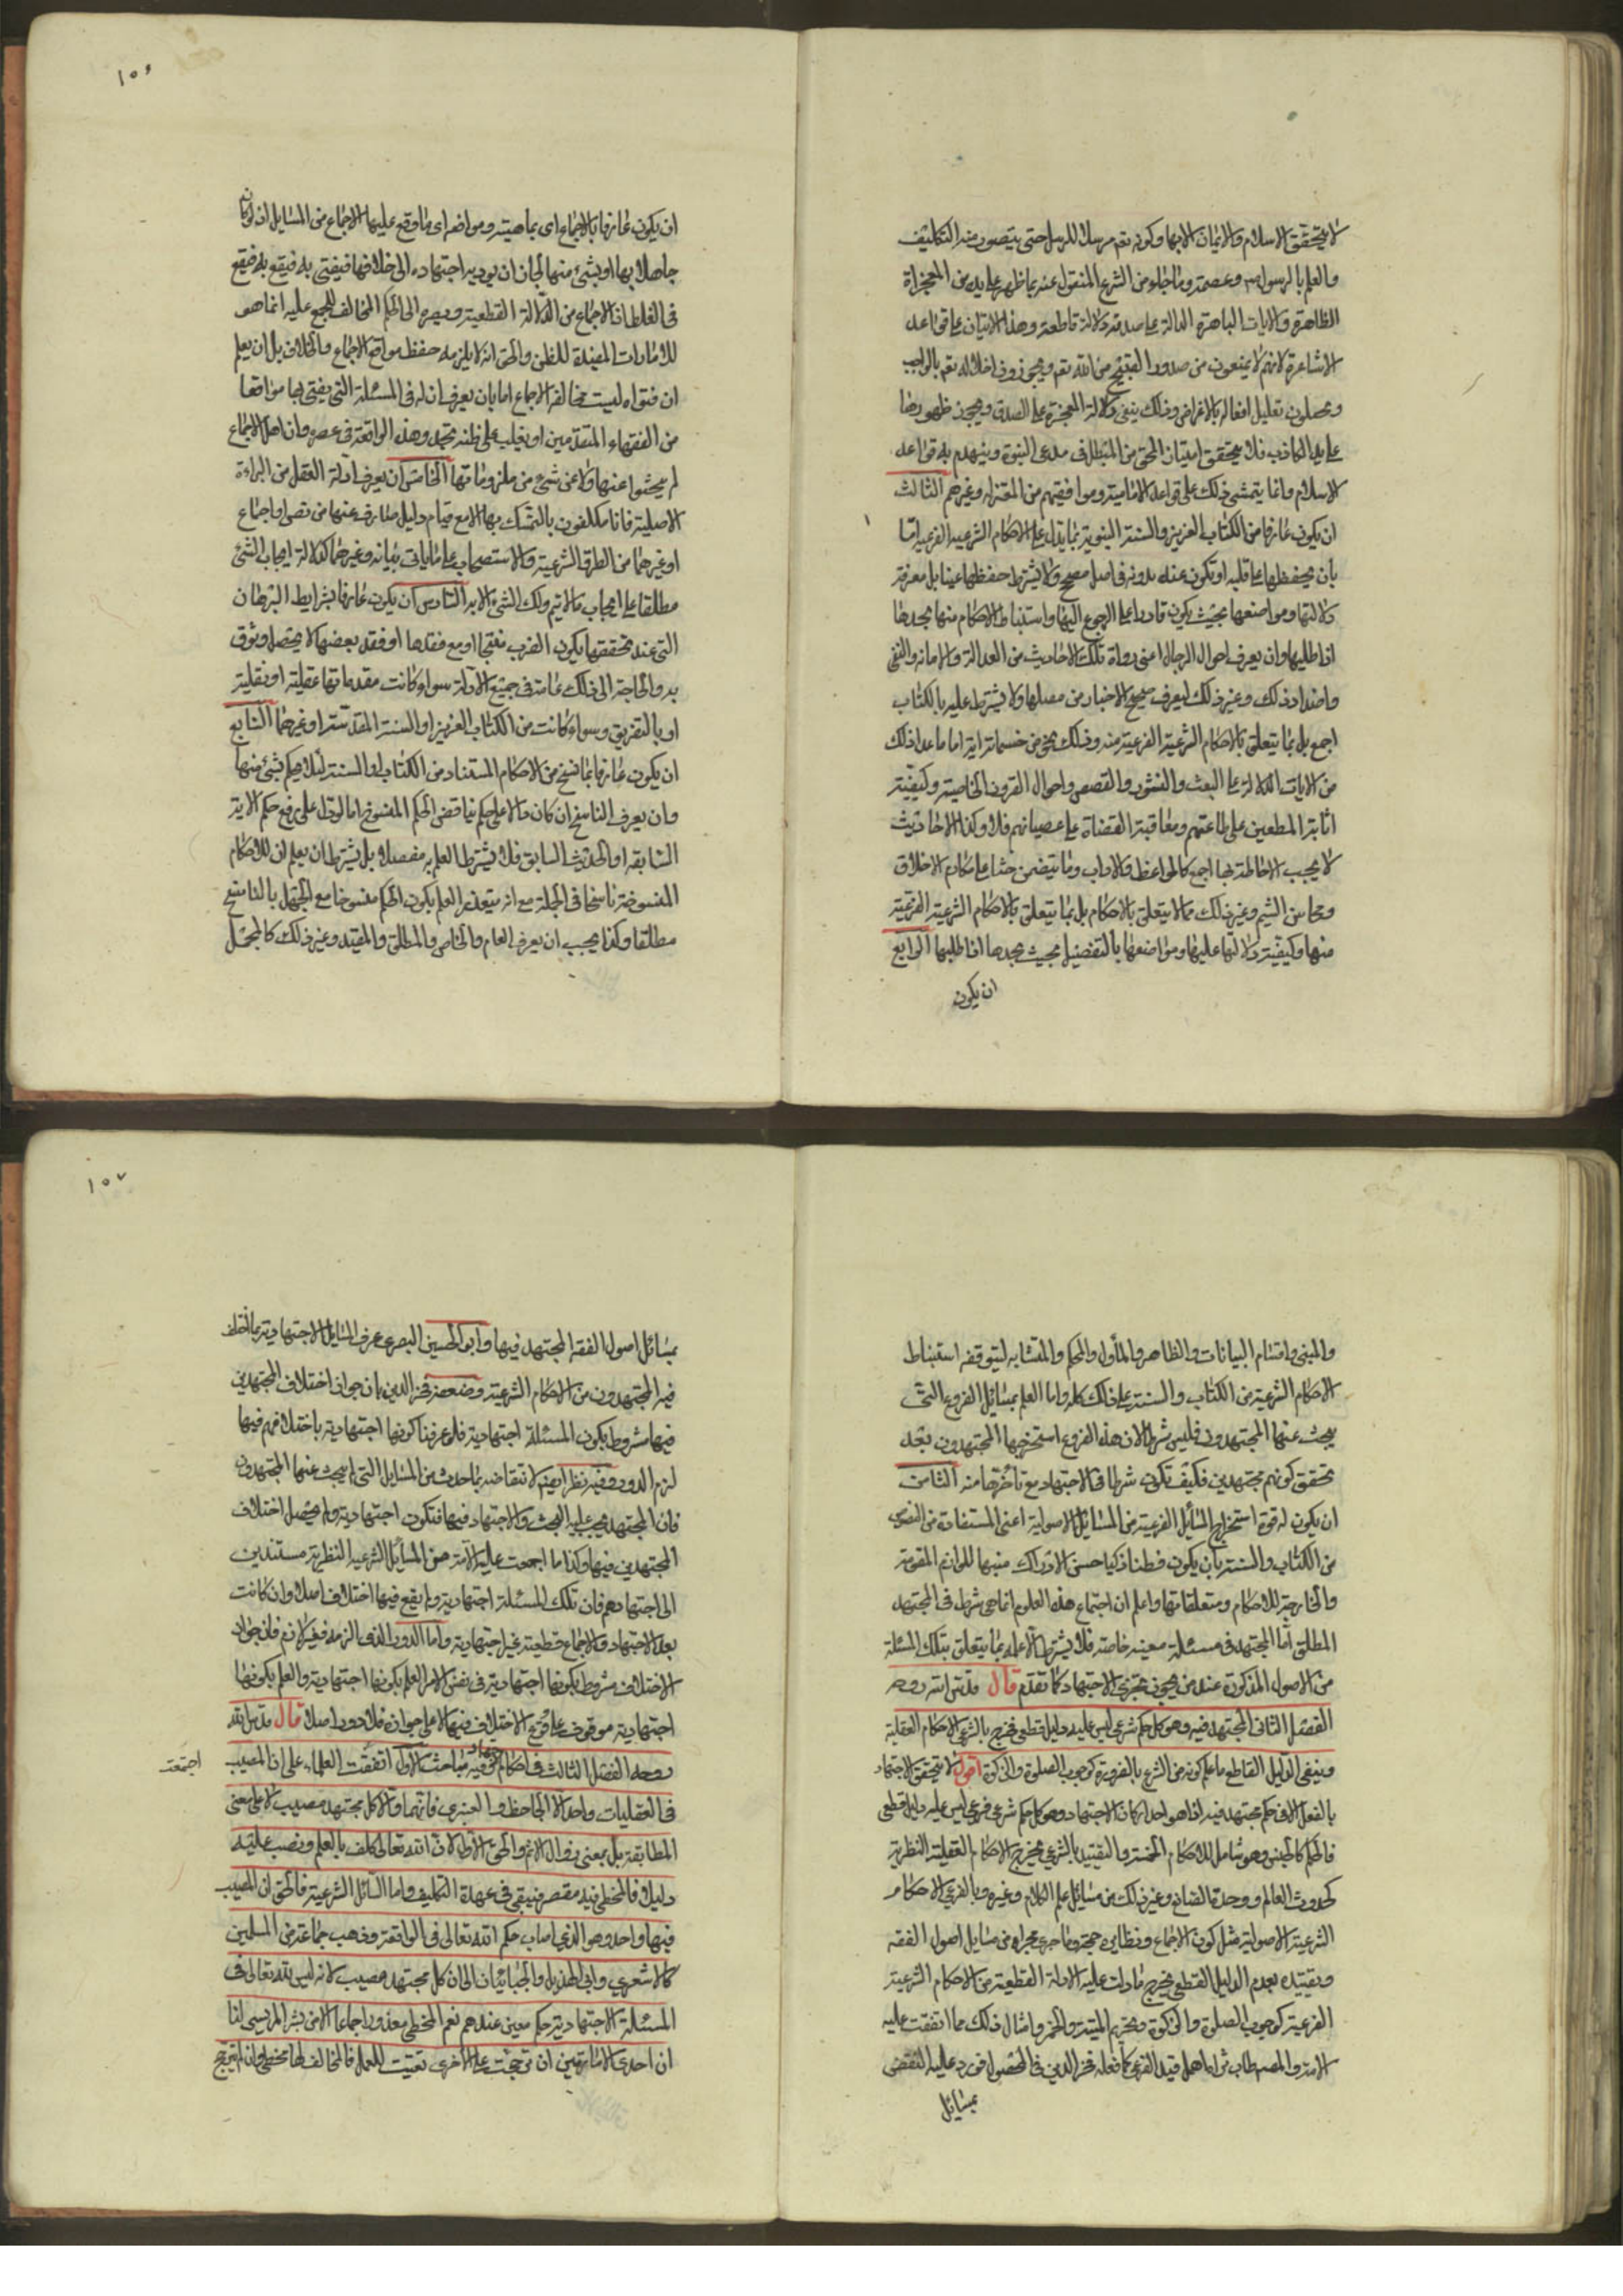 لا يتحقق الاسلام والايمان الا بها وكونه تعم مرسلا للرسل حتى يتصور منه التكليف
والعلم بالرسول وعصمته وما جاء من الشرع المنقول عنه بما ظهر على يده من المعجزاة
الظاهرة والايات الباهرة الدالة على صدقه دلالة قاطعة وهذا لا يتان على قواعد
الاشاعرة لانهم لا يمنعون من صدور القبيح من الله تعم ويجوزون اخلاله تعم بالواجب
ويحيلون تعليل افعاله بالاغراض وذلك ينفى دلالة المعجزة على الصدق ويجوز ظهورها
على يد الكاذب فلا يتحقق امتيان المحق من المبطل فى مدعى النبوة وينهدم به قواعد
الاسلام وانما يتمشى ذلك على قواعد الامامية وموافقيهم من المعتزلة وغيرهم الثالث
ان يكون عارفا من الكتاب العزيز والسنة النبوية بما يدل على الاحكام الشرعية الفرعية اما
بأن يحفظها على قلبه او تكون عنده مدونة فى اصل مصحح ولا يشترط حفظها عينا بل معرفة
دلالتها ومواضعها بحيث يكون قادرا على الرجوع اليها واستنباط الاحكام منها يجدها
اذا طلبها وان يعرف احوال الرجال اعنى رواة تلك الاحاديث من العدالة والامانة والتقى
واضداد ذلك وغير ذلك ليعرف صحيح الاخبار من معتلها ولا يشترط علمه بالكتاب
اجمع بل بما يتعلق بالاحكام الشرعية الفرعية منه وذلك نحو من خسمائة اية اما ما عدا ذلك
من الايات الدالة على البعث والنشور والقصص واحوال القرون الخالية وكيفية
اثابة المطيعين على طاعتهم ومعاقبة العصاة على عصيانهم فلا وكذا الاحاديث
لا يجب الاحاطة بها اجمع كالمواعظ والاداب وما يتضمن حثا على مكارم الاخلاق
ومحاسن الشيم وغير ذلك مما لا يتعلق بالاحكام بل بما يتعلق بالاحكام الشرعية الفرعية
منها وكيفية دلالتها عليها ومواضعها بالتفصيل بحيث يجدها اذا طلبها الرابع
ان يكون
١٥٦
ان يكون عارفا بالاجماع اى بماهيته ومواضعه اى ما وقع عليها الاجماع من المسايل اذ لو كان
جاهلا بها او بشىء منها لجاز ان يوديه اجتهاده الى خلافها فيفتى به فيقع
فى الغلط لان الاجماع من الادلة القطعية ومصيره الى الحكم المخالف للمجمع عليه انما هو
للامارات المفيدة للظن والحق انه لا يلزمه حفظ مواقع الاجماع والخلاف بل ان يعلم
ان فتواه ليست مخالفة الاجماع اما بان يعرف ان له فى المسئلة التى يفتى بها موافقا
من الفقهاء المتقدمين او يغلب على ظنه تجدد هذه الواقعة فى عصره وان اهل الاجماع
لم يبحثوا عنها ولا عن شىء من ملزوماتها الخامس ان يعرف ادلة العقل من البراءة
الاصلية فانا مكلفون بالتمسك بها الا مع قيام دليل صارف عنها من نص او اجماع
او غيرهما من الطرق الشرعية والاستصحاب على ما ياتى بيانه وغيرهما كدلالة ايجاب الشئ
مطلقا على ايجاب ما لا يتم ذلك الشىء الا به السادس ان يكون عارفا بشرايط البرهان
التى عند تحققها يكون الضرب منتجا ومع فقدها او فقد بعضها لا يحصل وثوق
به والحاجة الى ذلك عامة فى جميع الادلة سواء كانت مقدماتها عقلية او نقلية
او بالتفريق وسواء كانت من الكتاب العزيز او السنة المقدسة او غيرهما السابع
ان يكون عارفا بما نسخ من الاحكام المستفاد من الكتاب او السنة لئلا يحكم بشئ منها
وان يعرف الناسخ ان كان دالا على حكم يناقض الحكم المنسوخ اما لو دل على رفع حكم الاية
السابقة او الحديث السابق فلا يشترط العلم به مفصلا بل يشترط ان يعلم ان للاحكام
المنسوخة ناسخا فى الجملة مع انه يتعذر العلم بكون الحكم منسوخا مع الجهل بالناسخ
مطلقا وكذا يجب ان يعرف العام والخاص والمطلق والمقيد وغير ذلك كالمجمل
والمبنى واقسام البيانات والظاهر والمأول والمحكم والمتشابه لتوقف استنباط
الاحكام الشرعية من الكتاب والسنة على ذلك كله واما العلم بمسائل الفروع التى
يبحث عنها المجتهدون فليس شرطا لان هذه الفروع استخرجها المجتهدون بعد
تحقق كونهم مجتهدين فكيف تكون شرطا فى الاجتهاد مع تأخرها منه الثامن
ان يكون له قوة استخراج المسائل الفرعية من المسائل الاصولية اعنى المستفادة من النصوص
من الكتاب والسنة بان يكون فطنا ذكيا حسن الادراك منبها للوازم المقومة
والخارجية للاحكام ومتعلقاتها واعلم ان اجتماع هذه العلوم انما هى شرط فى المجتهد
المطلق اما المجتهد فى مسئلة معينة خاصة فلا يشترط الا علمه بما يتعلق بتلك المسئلة
من الاصول المذكورة عند من يجوز تجزى الاجتهاد كما تقدم قال قدس الله روحه
الفصل الثانى المجتهد فيه وهو كل حكم شرعى ليس عليه دليل قطعى فخرج بالشرعى الاحكام العقلية
وبنفى الدليل القاطع ما علم كونه من الشرع بالضرورة كوجوب الصلوة والزكوة اقول لا يتحقق الاجتهاد
بالفعل الا فى حكم مجتهد فيه اذا هو احد اركان الاجتهاد وهو كل حكم شرعى فرعى ليس عليه دليل قطعى
فالحكم كالجنس وهو شامل للاحكام الخمسة والتقييد بالشرعى يخرج الاحكام العقلية النظرية
كحدوث العالم ووحدة الصانع وغير ذلك من مسائل علم الكلام وغيره وبالفرعى الاحكام
الشرعية الاصولية مثل كون الاجماع ونظايره حجة وما جرى مجراه من مسايل اصول الفقه
وتقييده بعدم الدليل القطعى يخرج ما دلت عليه الادلة القطعية من الاحكام الشرعية
الفرعية كوجوب الصلوة والزكوة وتحريم الميتة والخمر وامثال ذلك مما اتفقت عليه
الامة والمصـ طاب ثراه اهمل قيد الفرعى كما فعله فخر الدين فى المحصول فورد عليه النقض
بمسائل
١٥٧
بمسائل اصول الفقه المجتهد فيها وابو الحسين البصرى عرف المسايل الاجتهادية بما اختلف
فيه المجتهدون من الاحكام الشرعية وضعفه فخر الدين بان جواز اختلاف المجتهدين
فيها مشروط بكون المسئلة اجتهادية فلو عرفنا كونها اجتهادية باختلافهم فيها
لزم الدور وفيه نظر ايضا لانتقاضه بما حدث من المسايل التى لم يبحث عنها المجتهدون
فان المجتهد يجب عليه البحث والاجتهاد فيها فتكون اجتهادية ولم يحصل اختلاف
المجتهدين فيها وكذا ما اجمعت عليه الامة من المسائل الشرعية النظرية مستندين
الى اجتهادهم فان تلك المسئلة اجتهادية ولم يقع فيها اختلاف اصلا وان كانت
بعد الاجتهاد والاجماع قطعية غير اجتهادية واما الدور الذى الزمه فغير لازم فان جواز
الاختلاف مشروط بكونها اجتهادية فى نفس الامر العلم بكونها اجتهادية والعلم بكونها
اجتهادية موقوف على وقوع الاختلاف فيها لا على جوازه فلا دور اصلا قال قدس الله
روحه الفصل الثالث فى احكام وفيه مباحث الاول اتفقت العلماء على ان المصيب
اجتمعت
فى العقليات واحد الا الجاحظ والعنبرى فانهما قالا كل مجتهد مصيب لا على معنى
المطابقة بل بمعنى زوال الاثم والحق الاول لان الله تعالى كلف بالعلم ونصب عليه
دليلا فالمخطى فيه مقصر فيبقى فى عهدة التكليف واما المسائل الشرعية فالحق ان المصيب
فيها واحد وهو الذى اصاب حكم الله تعالى فى الواقعة وذهب جماعة من المسلمين
كالاشعري وابى الهذيل والجبائيان الى ان كل مجتهد مصيب لانه ليس لله تعالى فى
المسئلة الاجتهادية حكم معين عندهم نعم المخطى معذور اجماعا الا من بشر المريسى لنا
ان احدى الامارتين ان ترجحت على الاخرى تعينت للعمل فالمخالف لها مخطى وان لم تترجح